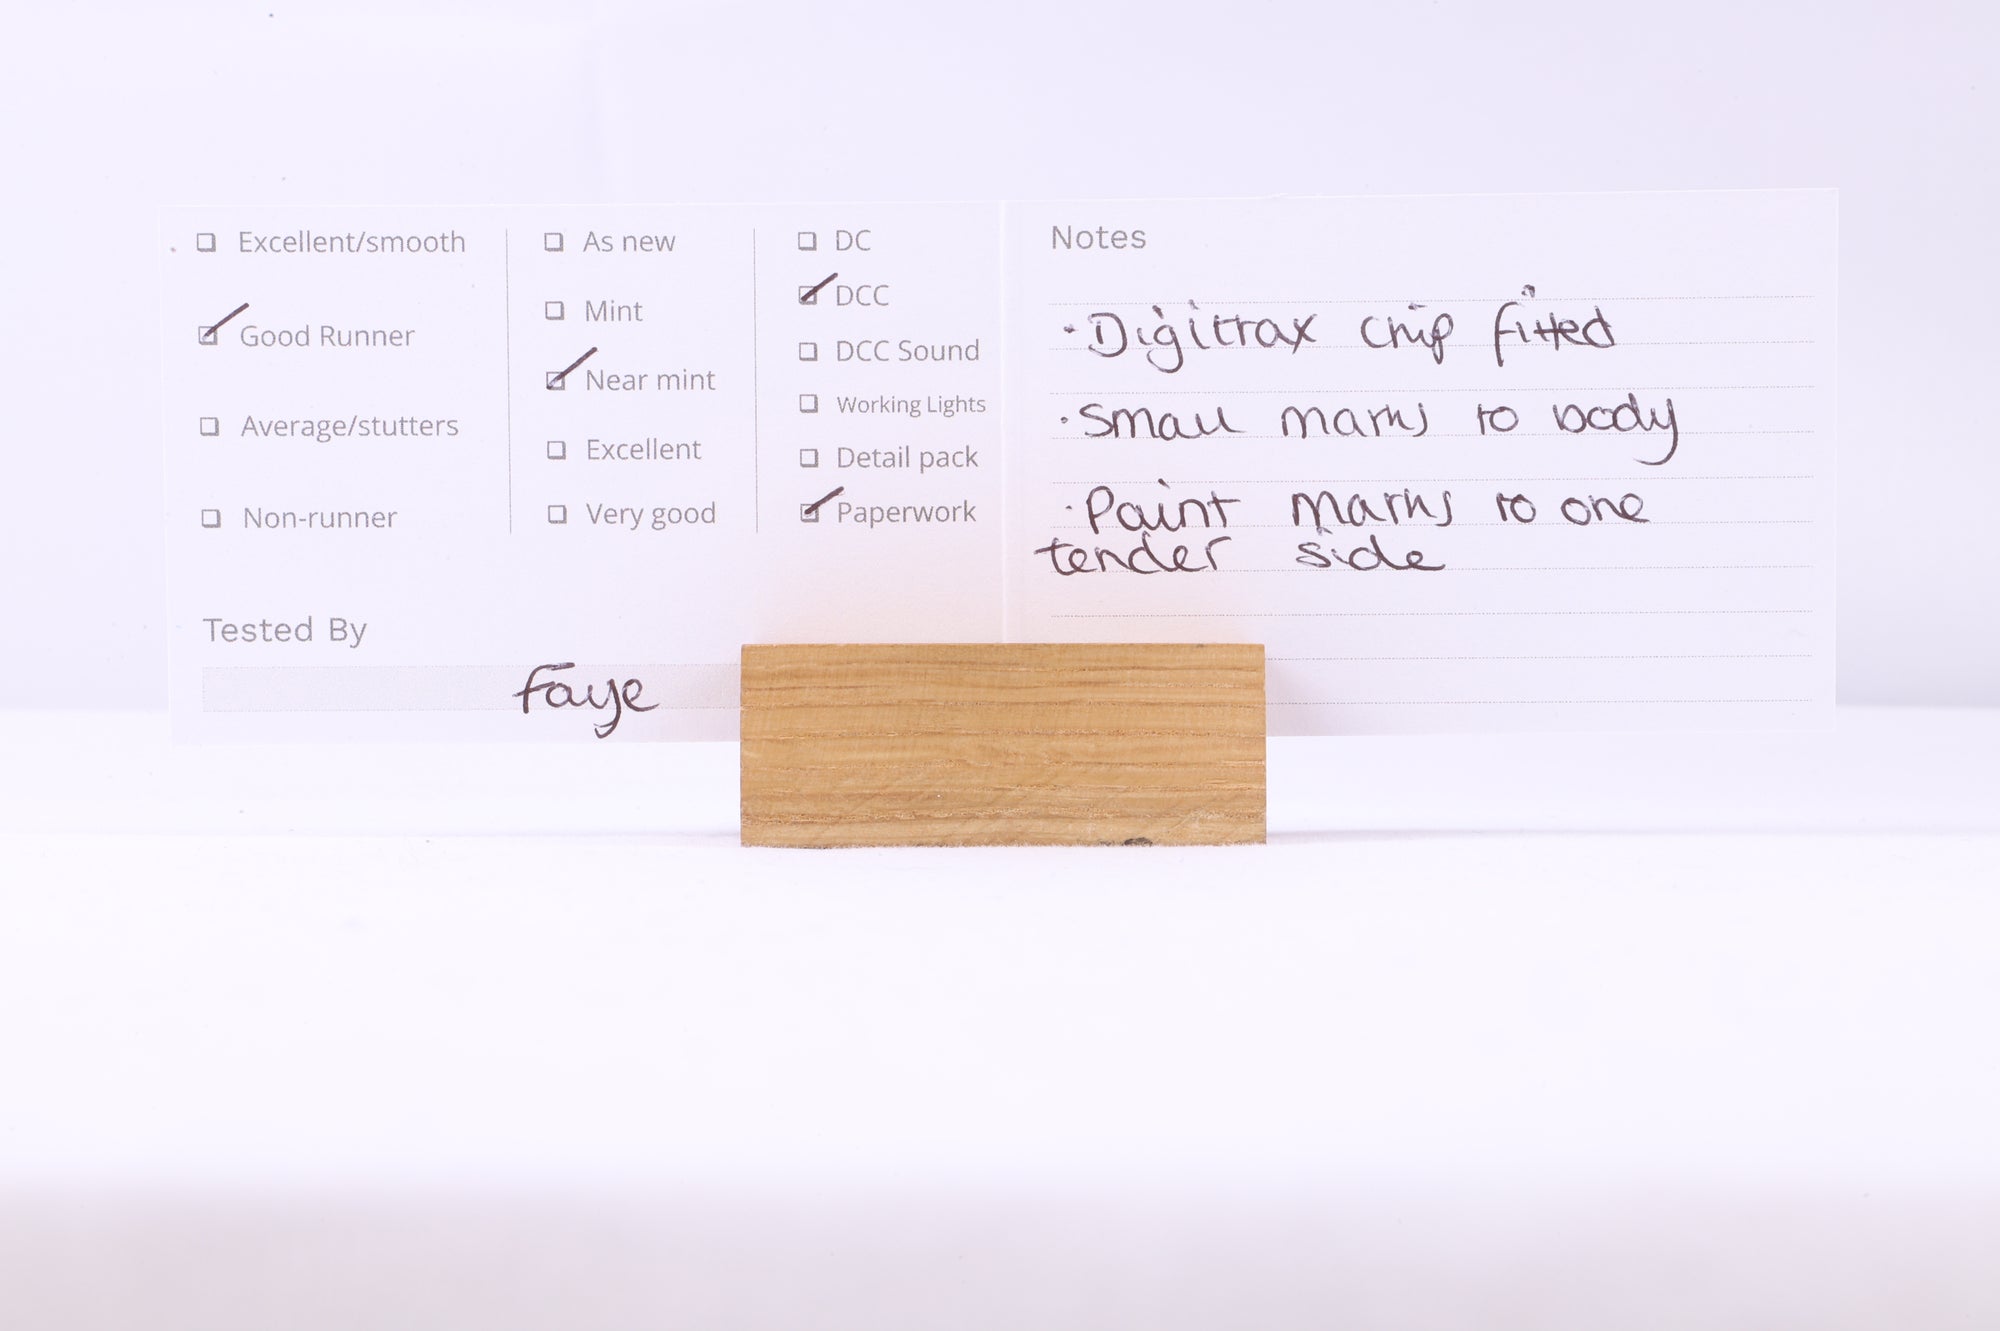 ☐ Excellent/smooth
☑ Good Runner
☐ Average/stutters
☐ Non-runner
☐ As new
☐ Mint
☑ Near mint
☐ Excellent
☐ Very good
☐ DC
☑ DCC
☐ DCC Sound
☐ Working Lights
☐ Detail pack
☑ Paperwork
Tested By
Faye
Notes
·Digitrax chip fitted
·Small marks to body
·Paint marks to one
tender side